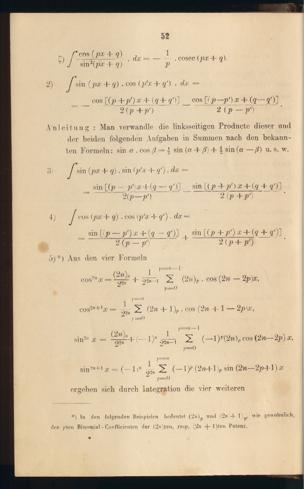 52
ζ) ∫ cos (px + q) / sin²(px + q) . dx = — 1/p . cosec (px + q).
2) ∫ sin (px + q) . cos (p'x + q') . dx =
= — cos [(p + p') x + (q + q')] / 2 (p + p') — cos [(p — p') x + (q — q')] / 2 (p — p') .
Anleitung : Man verwandle die linksseitigen Producte dieser und
der beiden folgenden Aufgaben in Summen nach den bekann-
ten Formeln: sin α . cos β = ½ sin (α + β) + ½ sin (α — β) u. s. w.
3) ∫ sin (px + q) . sin (p'x + q') . dx =
= sin [(p — p') x + (q — q')] / 2(p — p') — sin [(p + p') x + (q + q')] / 2 (p + p') .
4) ∫ cos (px + q) . cos (p'x + q') . dx =
= sin [(p — p') x + (q — q')] / 2 (p — p') + sin [(p + p') x + (q + q')] / 2 (p + p') .
5)*) Aus den vier Formeln
cos²ⁿ x = (2n)ₙ / 2²ⁿ + 1 / 2²ⁿ⁻¹ Σ (2n)ₚ . cos (2n — 2p)x,
cos²ⁿ⁺¹ x = 1 / 2²ⁿ Σ (2n + 1)ₚ . cos (2n + 1 — 2p)x,
sin²ⁿ x = (2n)ₙ / 2²ⁿ + (—1)ⁿ 1 / 2²ⁿ⁻¹ Σ (—1)ᵖ (2n)ₚ cos (2n — 2p) x,
sin²ⁿ⁺¹ x = (—1)ⁿ 1 / 2²ⁿ Σ (—1)ᵖ (2n+1)ₚ sin (2n—2p+1) x
ergeben sich durch Integration die vier weiteren
*) In den folgenden Beispielen bedeutet (2n)ₚ und (2n + 1)ₚ, wie gewöhnlich,
den pten Binomial-Coefficienten der (2n)ten, resp. (2n + 1)ten Potenz.